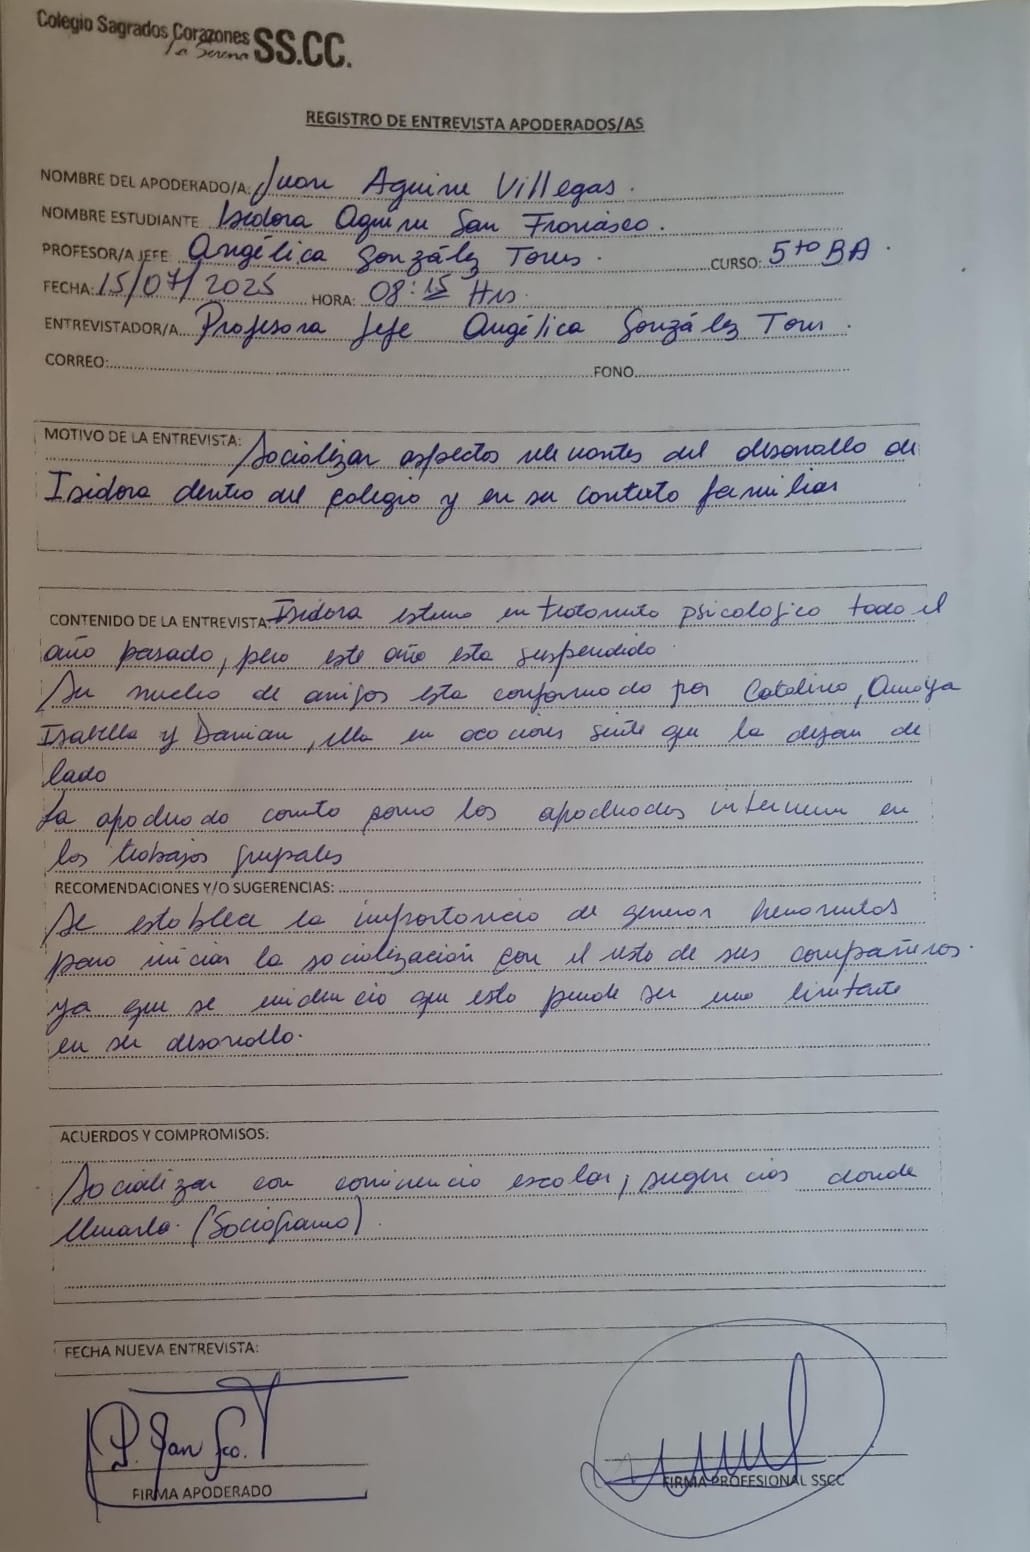 Colegio Sagrados Corazones
La Serena SS.CC.
REGISTRO DE ENTREVISTA APODERADOS/AS
NOMBRE DEL APODERADO/A: Juan Aguirre Villegas.
NOMBRE ESTUDIANTE Isidora Aguirre San Francisco.
PROFESOR/A JEFE: Angélica González Torres. CURSO: 5to BA.
FECHA: 15/07/2025 HORA: 08:15 Hrs.
ENTREVISTADOR/A. Profesora Jefe Angélica González Torres.
CORREO: FONO
MOTIVO DE LA ENTREVISTA: Socializar aspectos relevantes del desarrollo de
Isidora dentro del colegio y en su contexto familiar
CONTENIDO DE LA ENTREVISTA: Isidora estuvo en tratamiento psicologico todo el
año pasado, pero este año esta suspendido.
Su nucleo de amigos esta conformado por Catalina, Amaya
Isabella y Damian, ella en ocaciones siente que la dejan de
lado
La apoderado como los apoderados intervienen en
los trabajos grupales
RECOMENDACIONES Y/O SUGERENCIAS:
Se establece la importancia de generar
para iniciar la socialización con el resto de sus compañeros.
ya que se evidencia que esto puede ser una limitante
en su desarrollo.
ACUERDOS Y COMPROMISOS:
Socializar con convivencia escolar, sugerencias donde
llevarla. (Sociograma).
FECHA NUEVA ENTREVISTA:
P. San Fco.
FIRMA APODERADO FIRMA PROFESIONAL SSCC